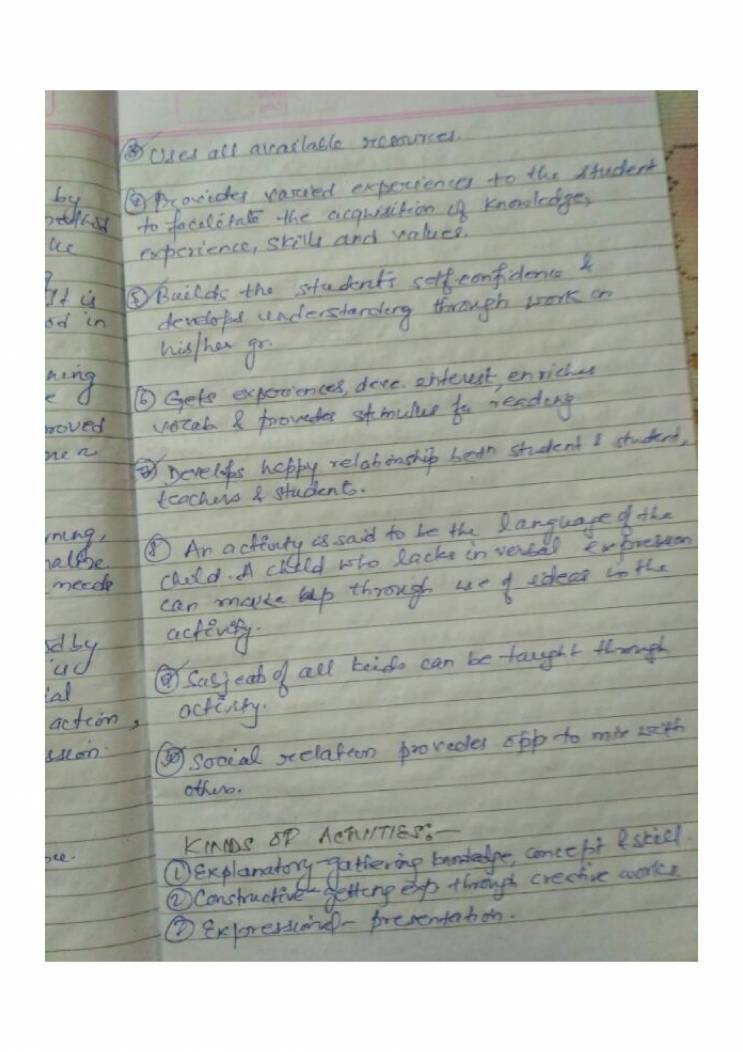 by
It is
ed in
ning
e
roved
ner
rning,
alise
needs
ed by
ial
action,
ssion.
③ Uses all available resources.
④ Provides varied experiences to the student
to facilitate the acquisition of knowledge,
experience, skills and values.
⑤ Builds the student's self confidence &
develops understanding through work in
his/her gr.
⑥ Gets experiences, deve. interest, enriches
vocab & provides stimulus for reading
⑦ Develops happy relationship betn student & student,
teachers & students.
⑧ An activity is said to be the language of the
child. A child who lacks in verbal expression
can make up through use of ideas in the
activity.
⑨ of all kinds can be taught through
activity.
⑩ Social relation provides opp to mix with
others.
KINDS OF ACTIVITIES:-
① Explanatory - gathering knowledge, concept & skill.
② Constructive - getting exp through creative works
③ Expressional - presentation.